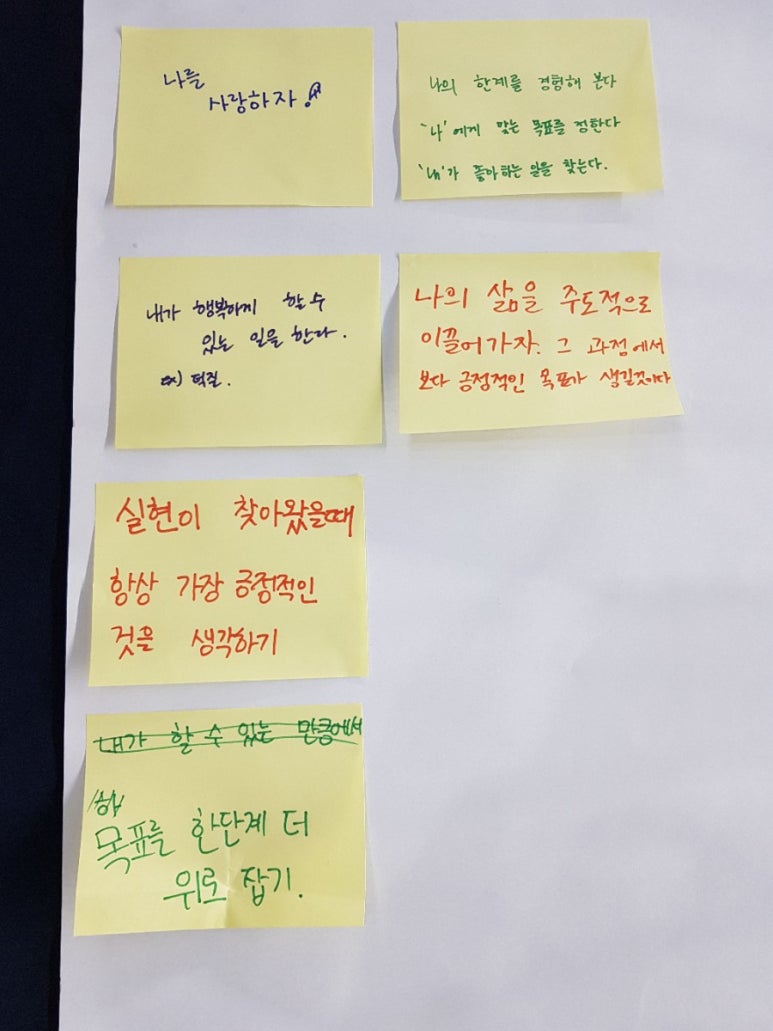 나를
사랑하자!
나의 한계를 경험해 본다
'나'에게 맞는 목표를 정한다
'나'가 좋아하는 일을 찾는다.
내가 행복하게 할 수
있는 일을 한다.
ex) 덕질.
나의 삶을 주도적으로
이끌어가자. 그 과정에서
보다 긍정적인 목표가 생길것이다
실현이 찾아왔을때
항상 가장 긍정적인
것을 생각하기
내가 할 수 있는 만큼에서
목표를 한단계 더
위로 잡기.